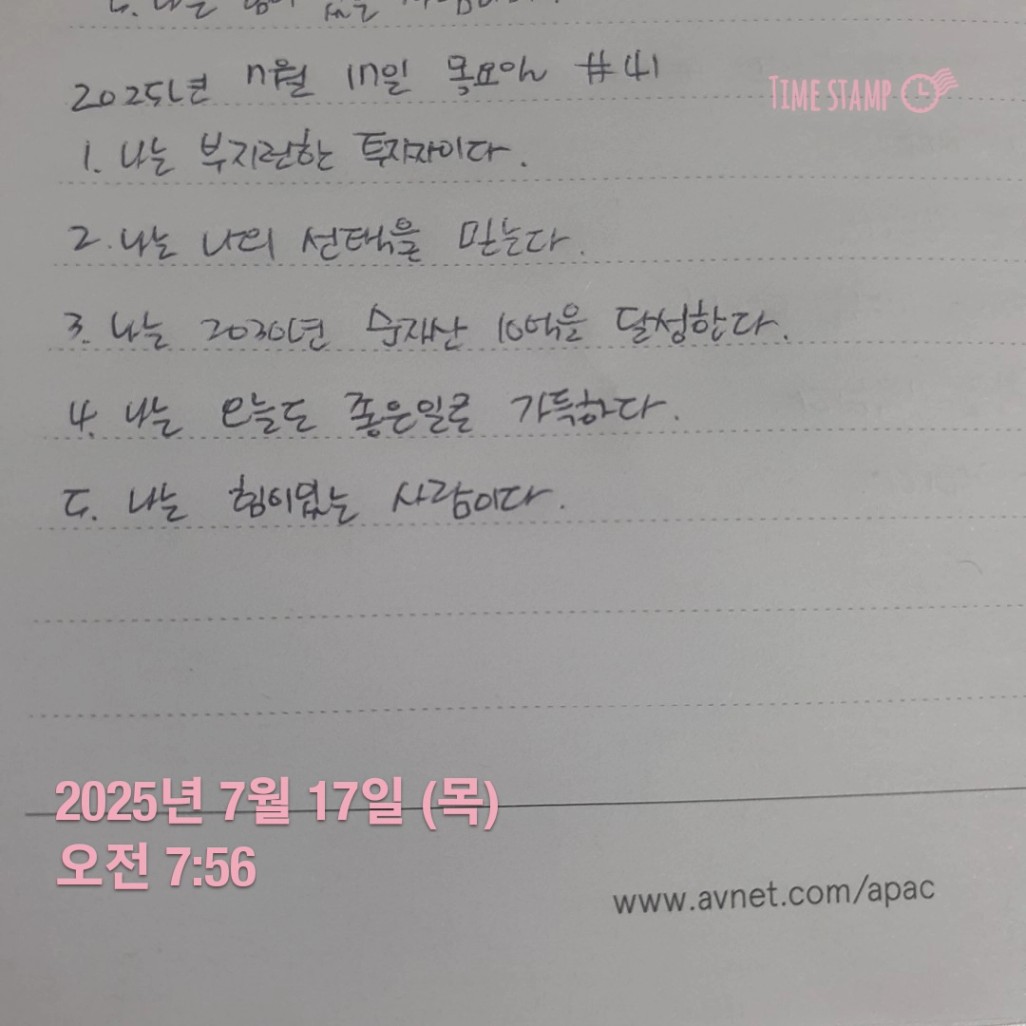 5. 나는 힘이 없는 사람이다.
2025년 7월 17일 목요일 #41
TIME STAMP
1. 나는 부지런한 투자자이다.
2. 나는 나의 선택을 믿는다.
3. 나는 2030년 순자산 10억을 달성한다.
4. 나는 오늘도 좋은일로 가득하다.
5. 나는 힘이있는 사람이다.
2025년 7월 17일 (목)
오전 7:56
www.avnet.com/apac